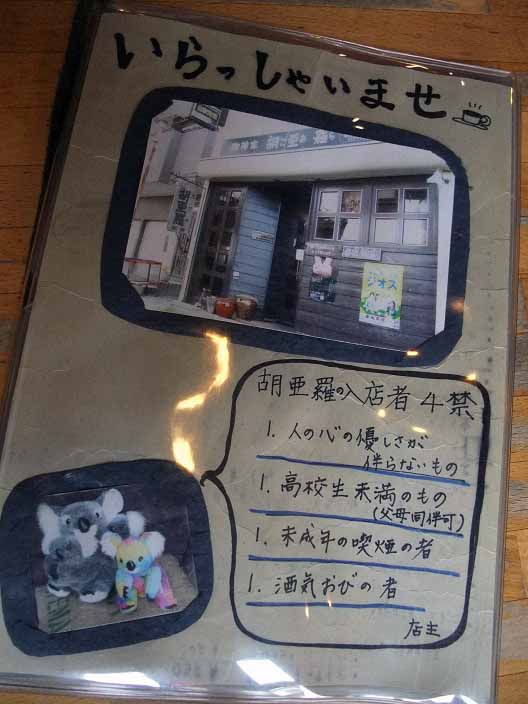 いらっしゃいませ
珈琲家 胡亜羅
ジオス
胡亜羅の入店者4禁
1. 人の心の優しさが
伴らないもの
1. 高校生未満のもの
(父母同伴可)
1. 未成年の喫煙の者
1. 酒気おびの者
店主